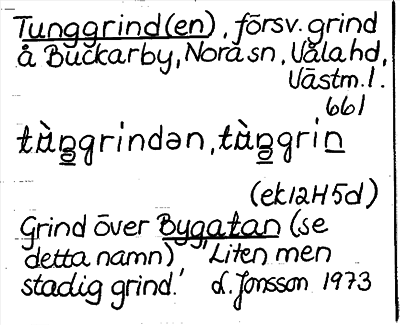 Tunggrind(en), försv. grind
å Buckarby, Nora sn, Våla hd,
Västm. l.
661
tùn̲grindən, tùn̲grin̲
(ek12H5d)
Grind över Bygatan (se
detta namn) "Liten men
stadig grind." L. Jonsson 1973